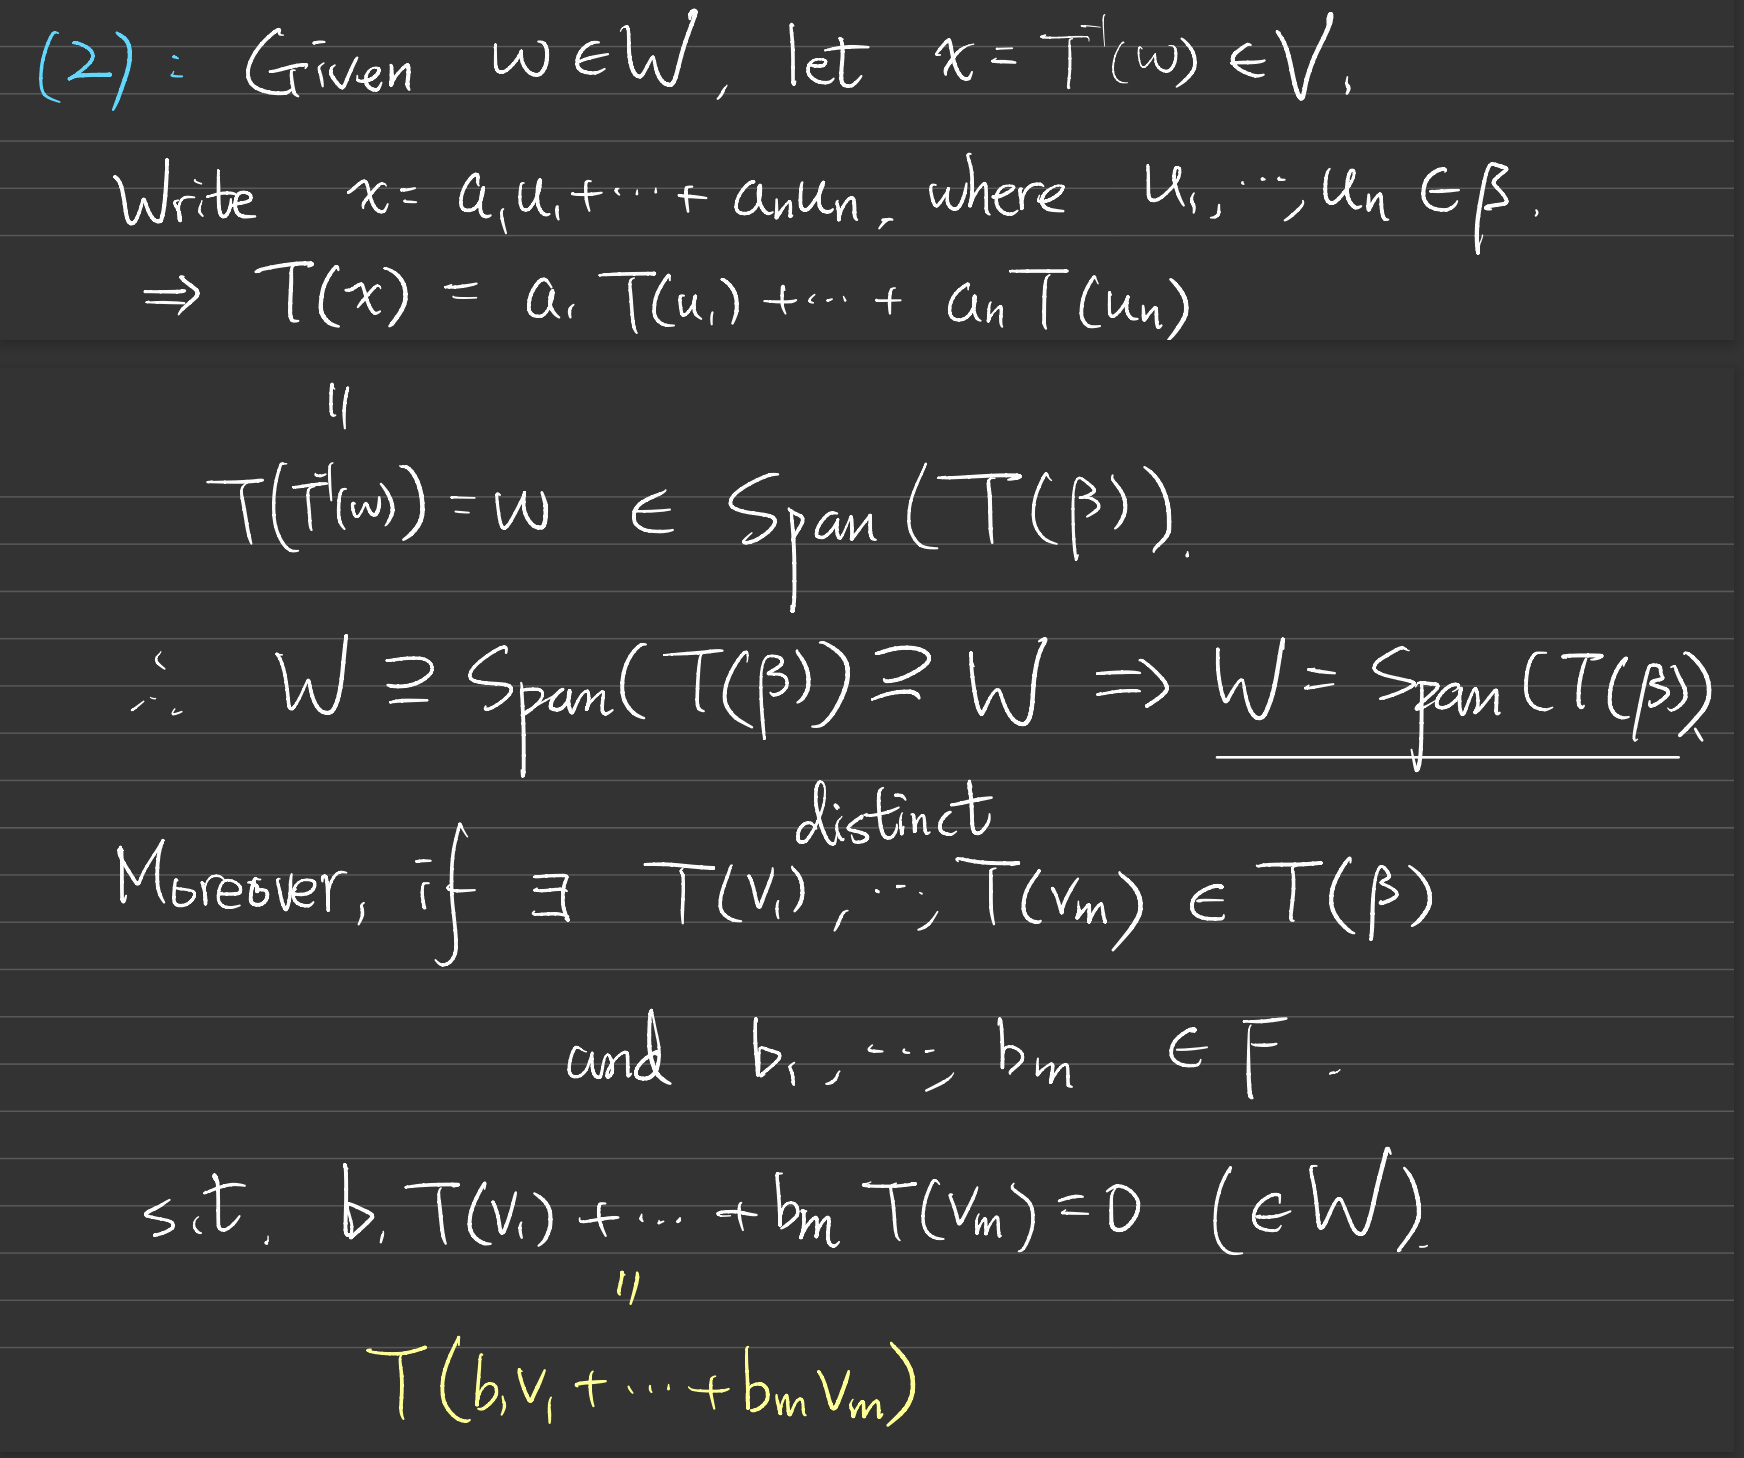 (2): Given w ∈ W, let x = T⁻¹(w) ∈ V.
Write x = a₁u₁ + ⋯ + aₙuₙ, where u₁, ⋯, uₙ ∈ β.
⇒ T(x) = a₁T(u₁) + ⋯ + aₙT(uₙ)
||
T(T⁻¹(w)) = w ∈ Span(T(β)).
∴ W ⊇ Span(T(β)) ⊇ W ⇒ W = Span(T(β)).
distinct
Moreover, if ∃ T(v₁), ⋯, T(vₘ) ∈ T(β)
and b₁, ⋯, bₘ ∈ F.
s.t. b₁T(v₁) + ⋯ + bₘT(vₘ) = 0 (∈ W).
||
T(b₁v₁ + ⋯ + bₘvₘ)